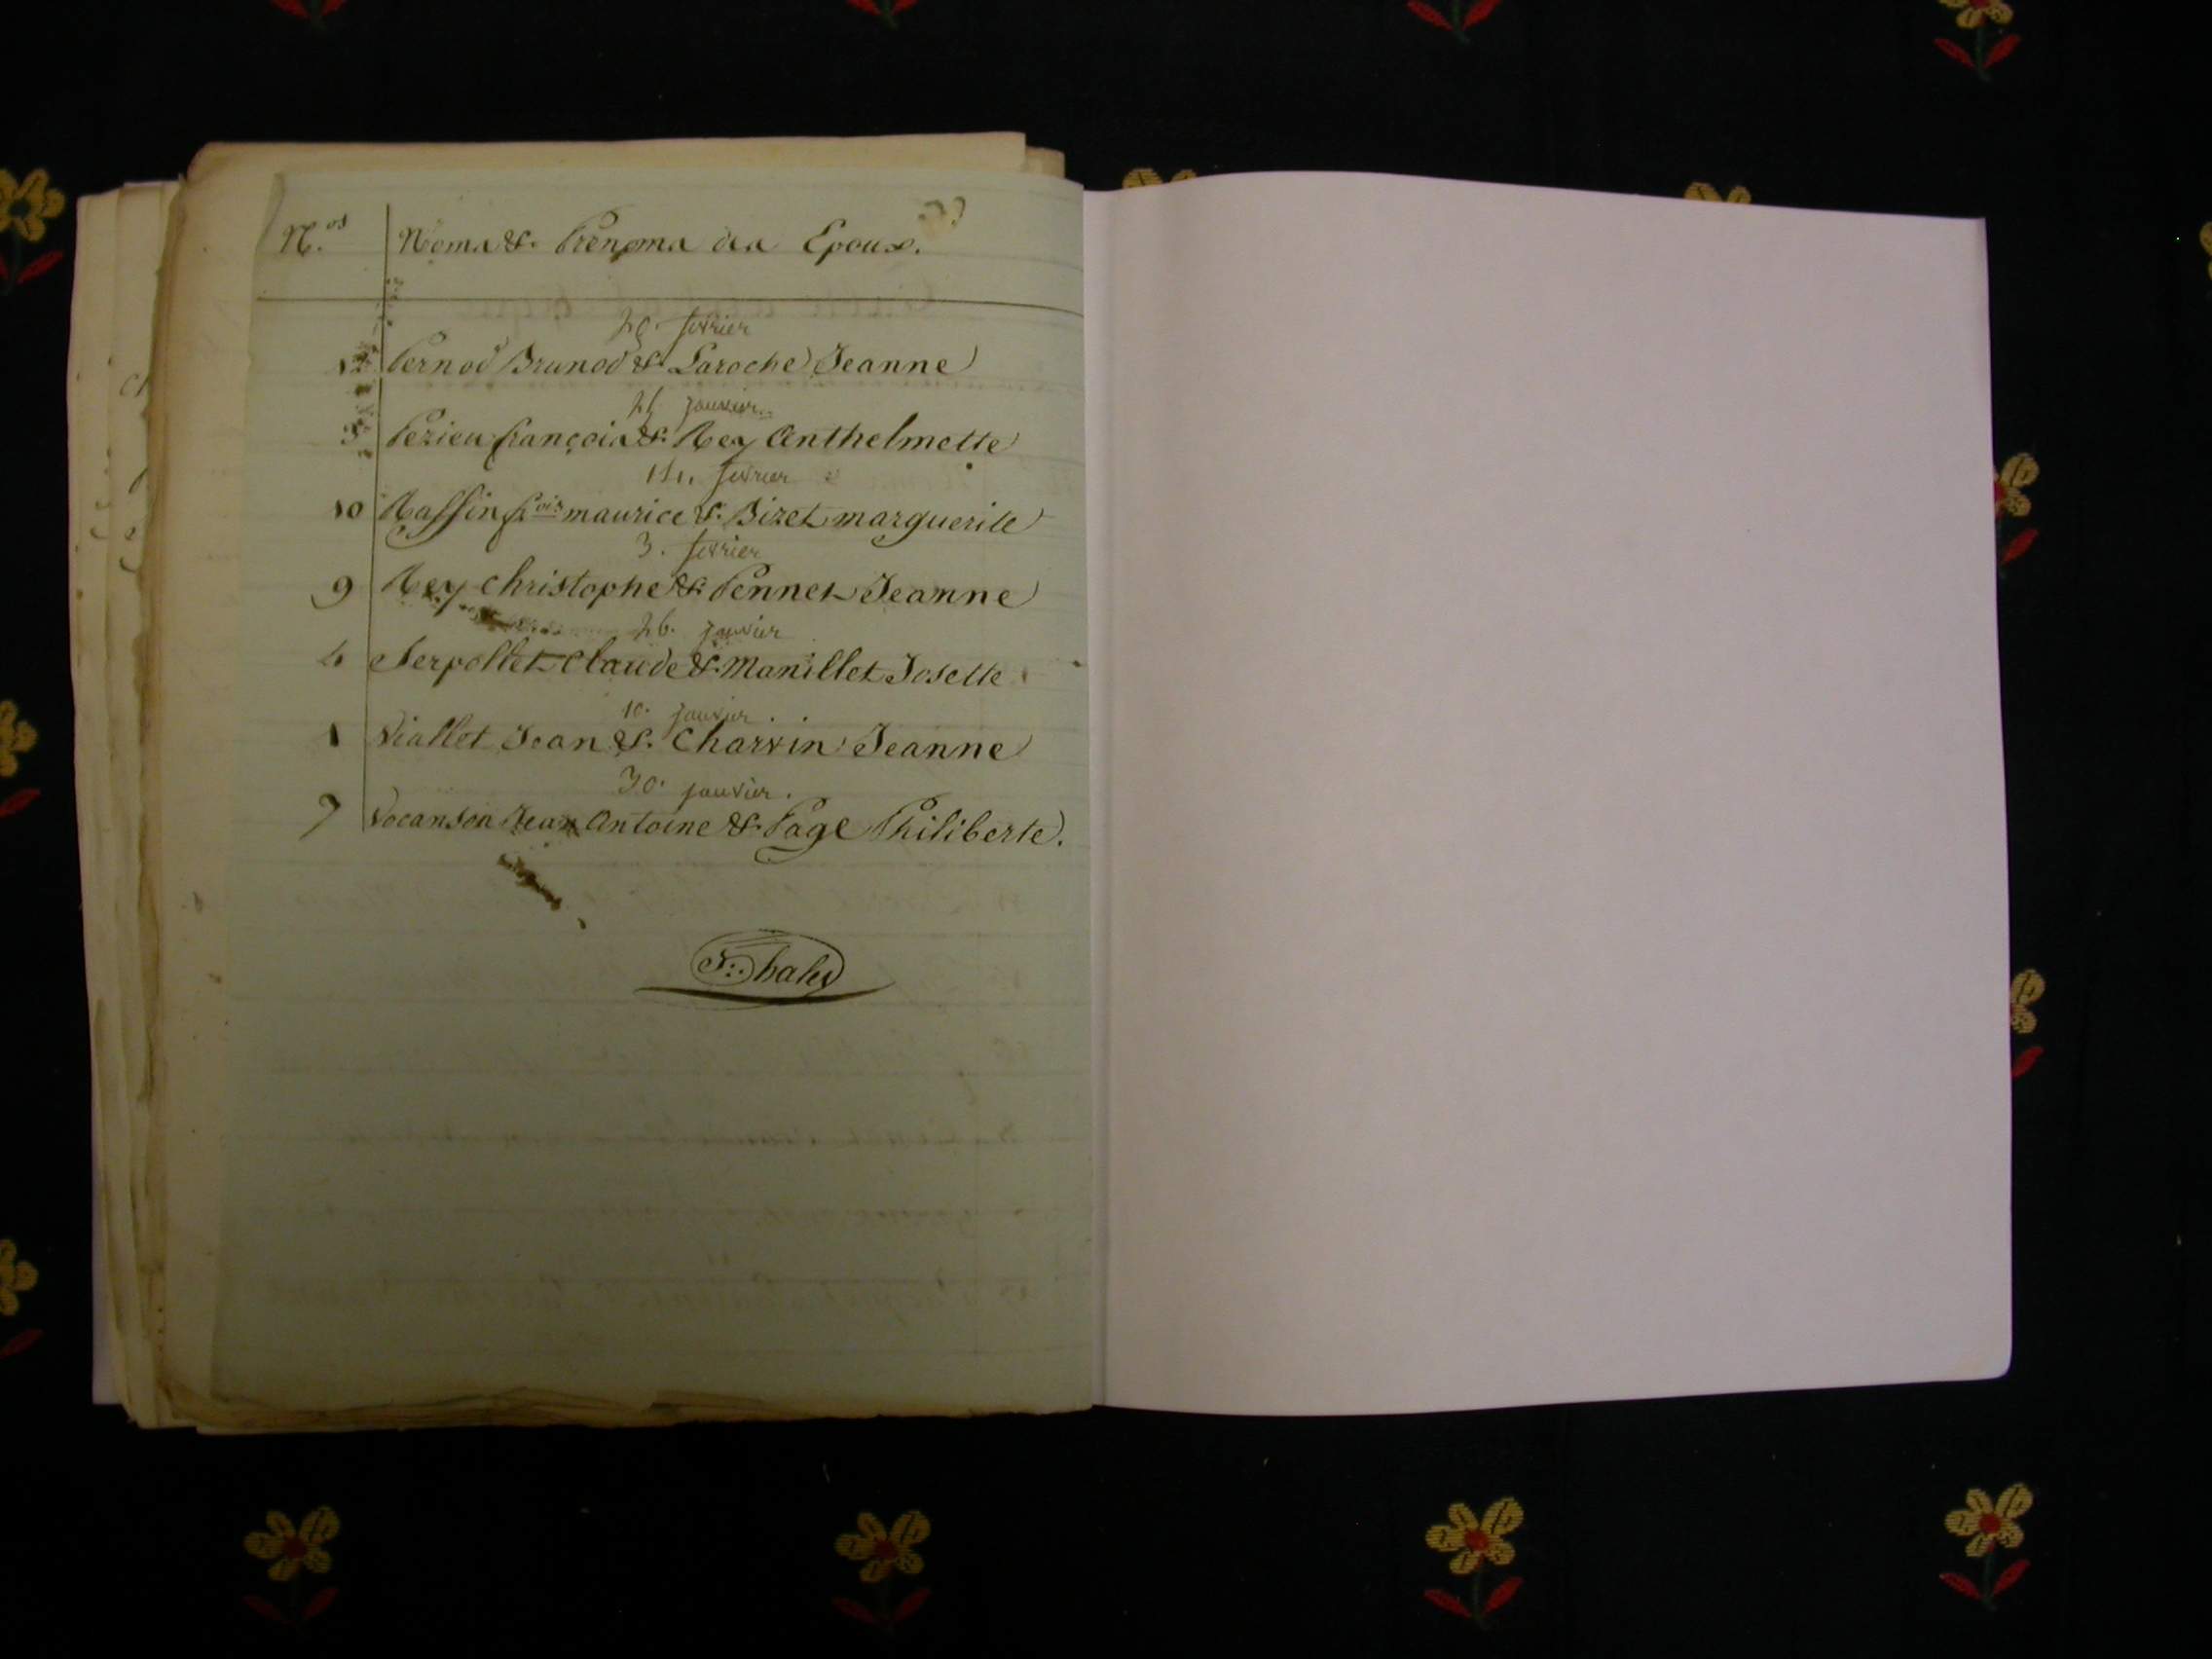 N.os Noms & Prenoms des Epoux.
fevrier
Pernod Brunod & Laroche Jeanne
21 janvier.
Pezieu françois & Rey Anthelmette
fevrier
10 Rassin fr.ois maurice & Bizet marguerite
3. fevrier
9 Rey christophe & Pennet Jeanne
26. janvier
4 Serpollet Claude & Manillet Josette
10. janvier.
1 Viallet Jean & Charvin Jeanne
30. janvier.
7 Vocanson Jean Antoine & Page Philiberte.